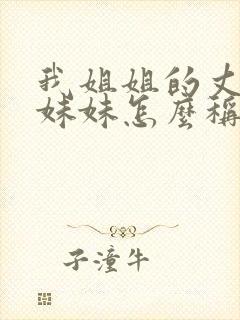 我姐姐的丈
妹妹怎麼稱
子潼牛